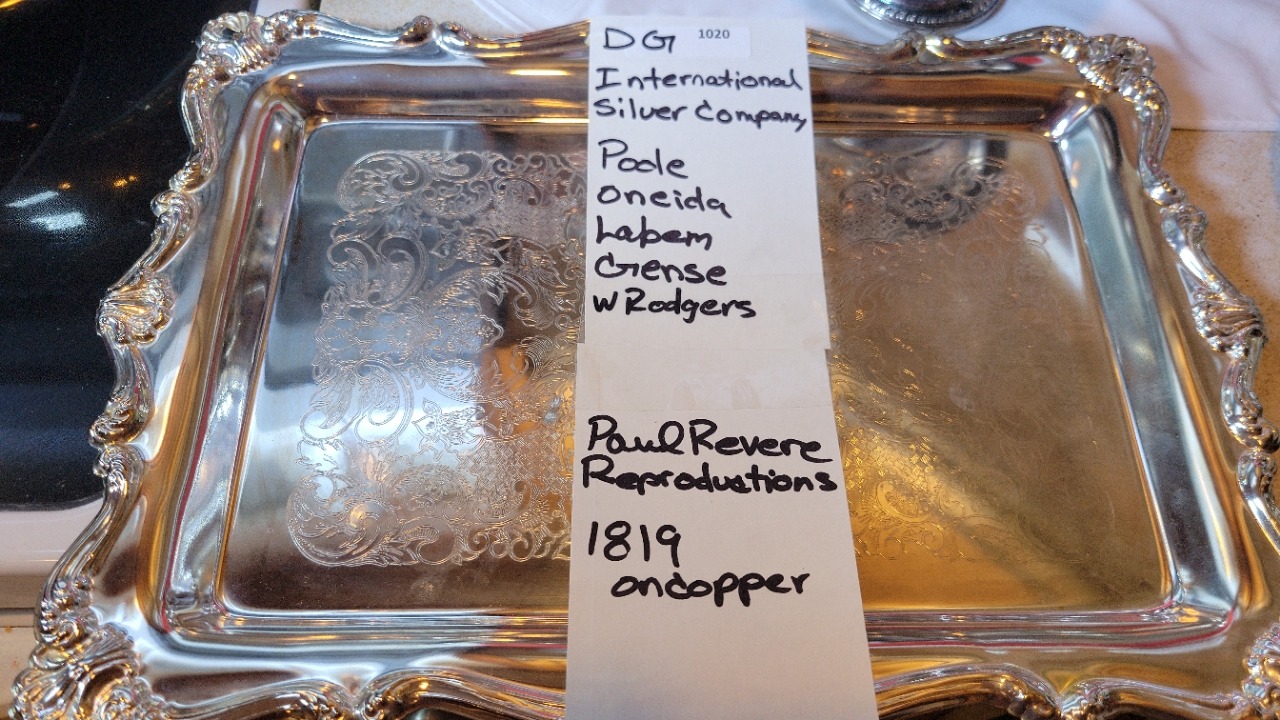 DG 1020
International
Silver Company
Poole
Oneida
Labem
Gense
W Rodgers
Paul Revere
Reproductions
1819
on copper